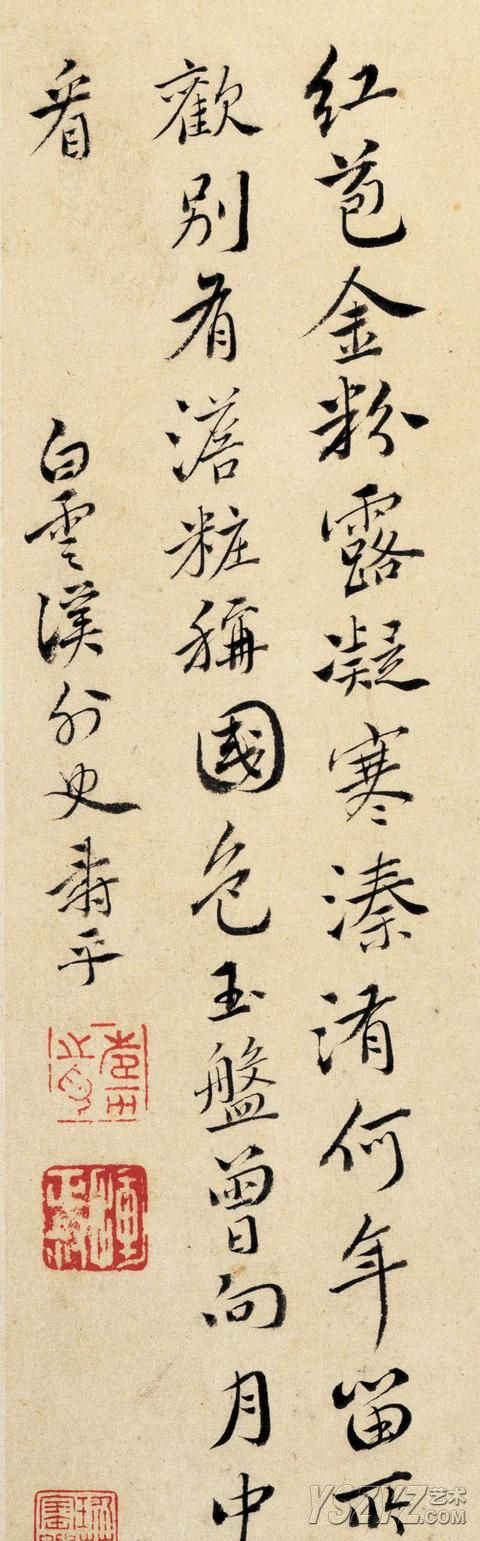 红苞金粉露凝寒溱洧何年留所
歡别有澹粧稱國色玉盤曾向月中
看
白雲溪外史壽平
YSZYZ艺术
.com